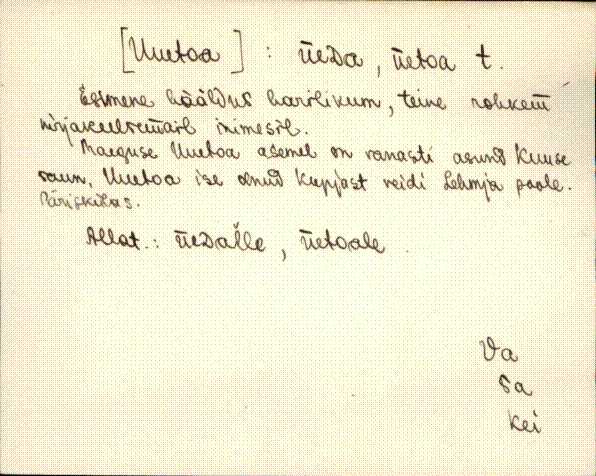 [Uuetoa] : ūeᴅa, ūetoa t.
Esimene hääldus harilikum, teine rohkem
kirjakeelsemail inimesil.
Praeguse Uuetoa asemel on vanasti asund Kuuse
saun, Uuetoa ise olnud Kupjast veidi Lehmja poole.
Päriskülas.
Allat.: ūeᴅalle, ūetoale.
Va
Sa
Kei